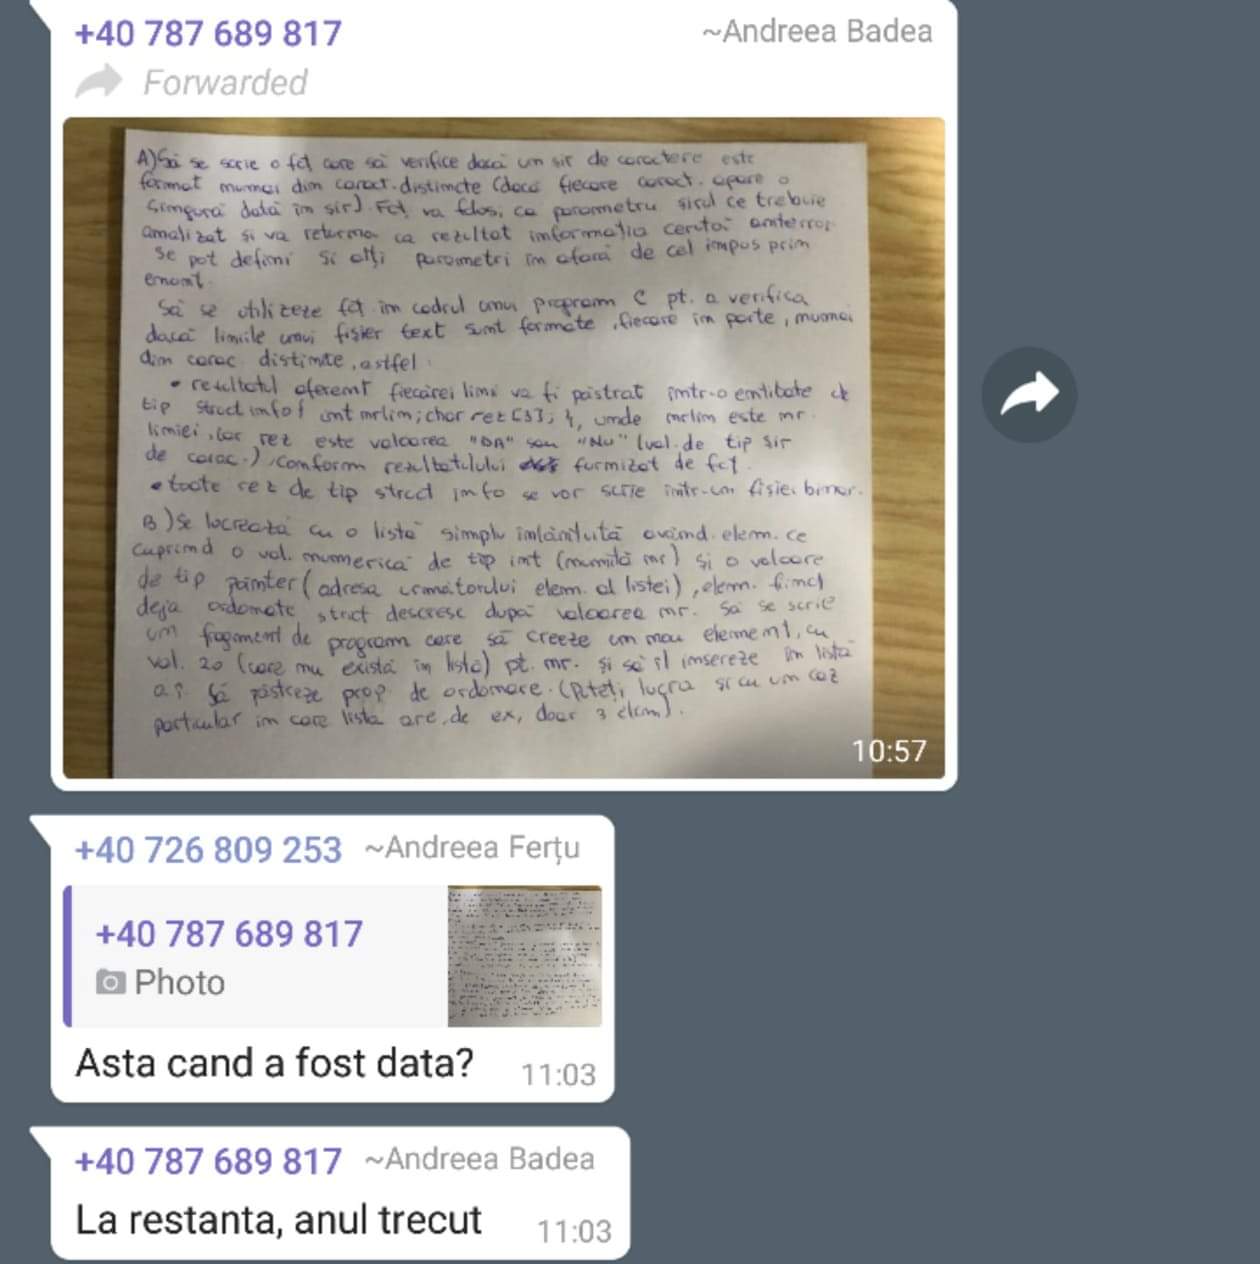 +40 787 689 817 ~Andreea Badea
Forwarded
A) Să se scrie o fct care să verifice dacă un sir de caractere este
format numai din caract. distincte (dacă fiecare caract. apare o
singură dată în sir). Fct va folosi ca parametru sirul ce trebuie
analizat si va returna ca rezultat informația cerută anterior
Se pot defini si alți parametri în afară de cel impus prin
enunt.
Să se utilizeze fct în cadrul unui program C pt. a verifica
dacă liniile unui fișier text sunt formate, fiecare în parte, numai
din carac distincte, astfel:
• rezultatul aferent fiecărei linii va fi păstrat într-o entitate de
tip struct info { int nrlin; char rez[3]; }, unde nrlin este nr.
liniei, iar rez este valoarea "DA" sau "NU" (val. de tip sir
de carac.), conform rezultatului furnizat de fct.
• toate rez de tip struct info se vor scrie intr-un fisier binar.
B) Se lucrează cu o listă simplu înlănțuită având elem. ce
cuprind o val. numerică de tip int (numită nr) și o valoare
de tip pointer (adresa următorului elem. al listei), elem. fiind
deja ordonate strict descresc după valoarea nr. Să se scrie
un fragment de program care să creeze un nou element, cu
val. 20 (care nu există în listă) pt. nr. și să îl insereze în listă
a.î. să păstreze prop de ordonare. (Puteți lucra și cu un caz
particular în care lista are, de ex, doar 3 elem).
10:57
+40 726 809 253 ~Andreea Ferțu
+40 787 689 817
Photo
Asta cand a fost data? 11:03
+40 787 689 817 ~Andreea Badea
La restanta, anul trecut 11:03